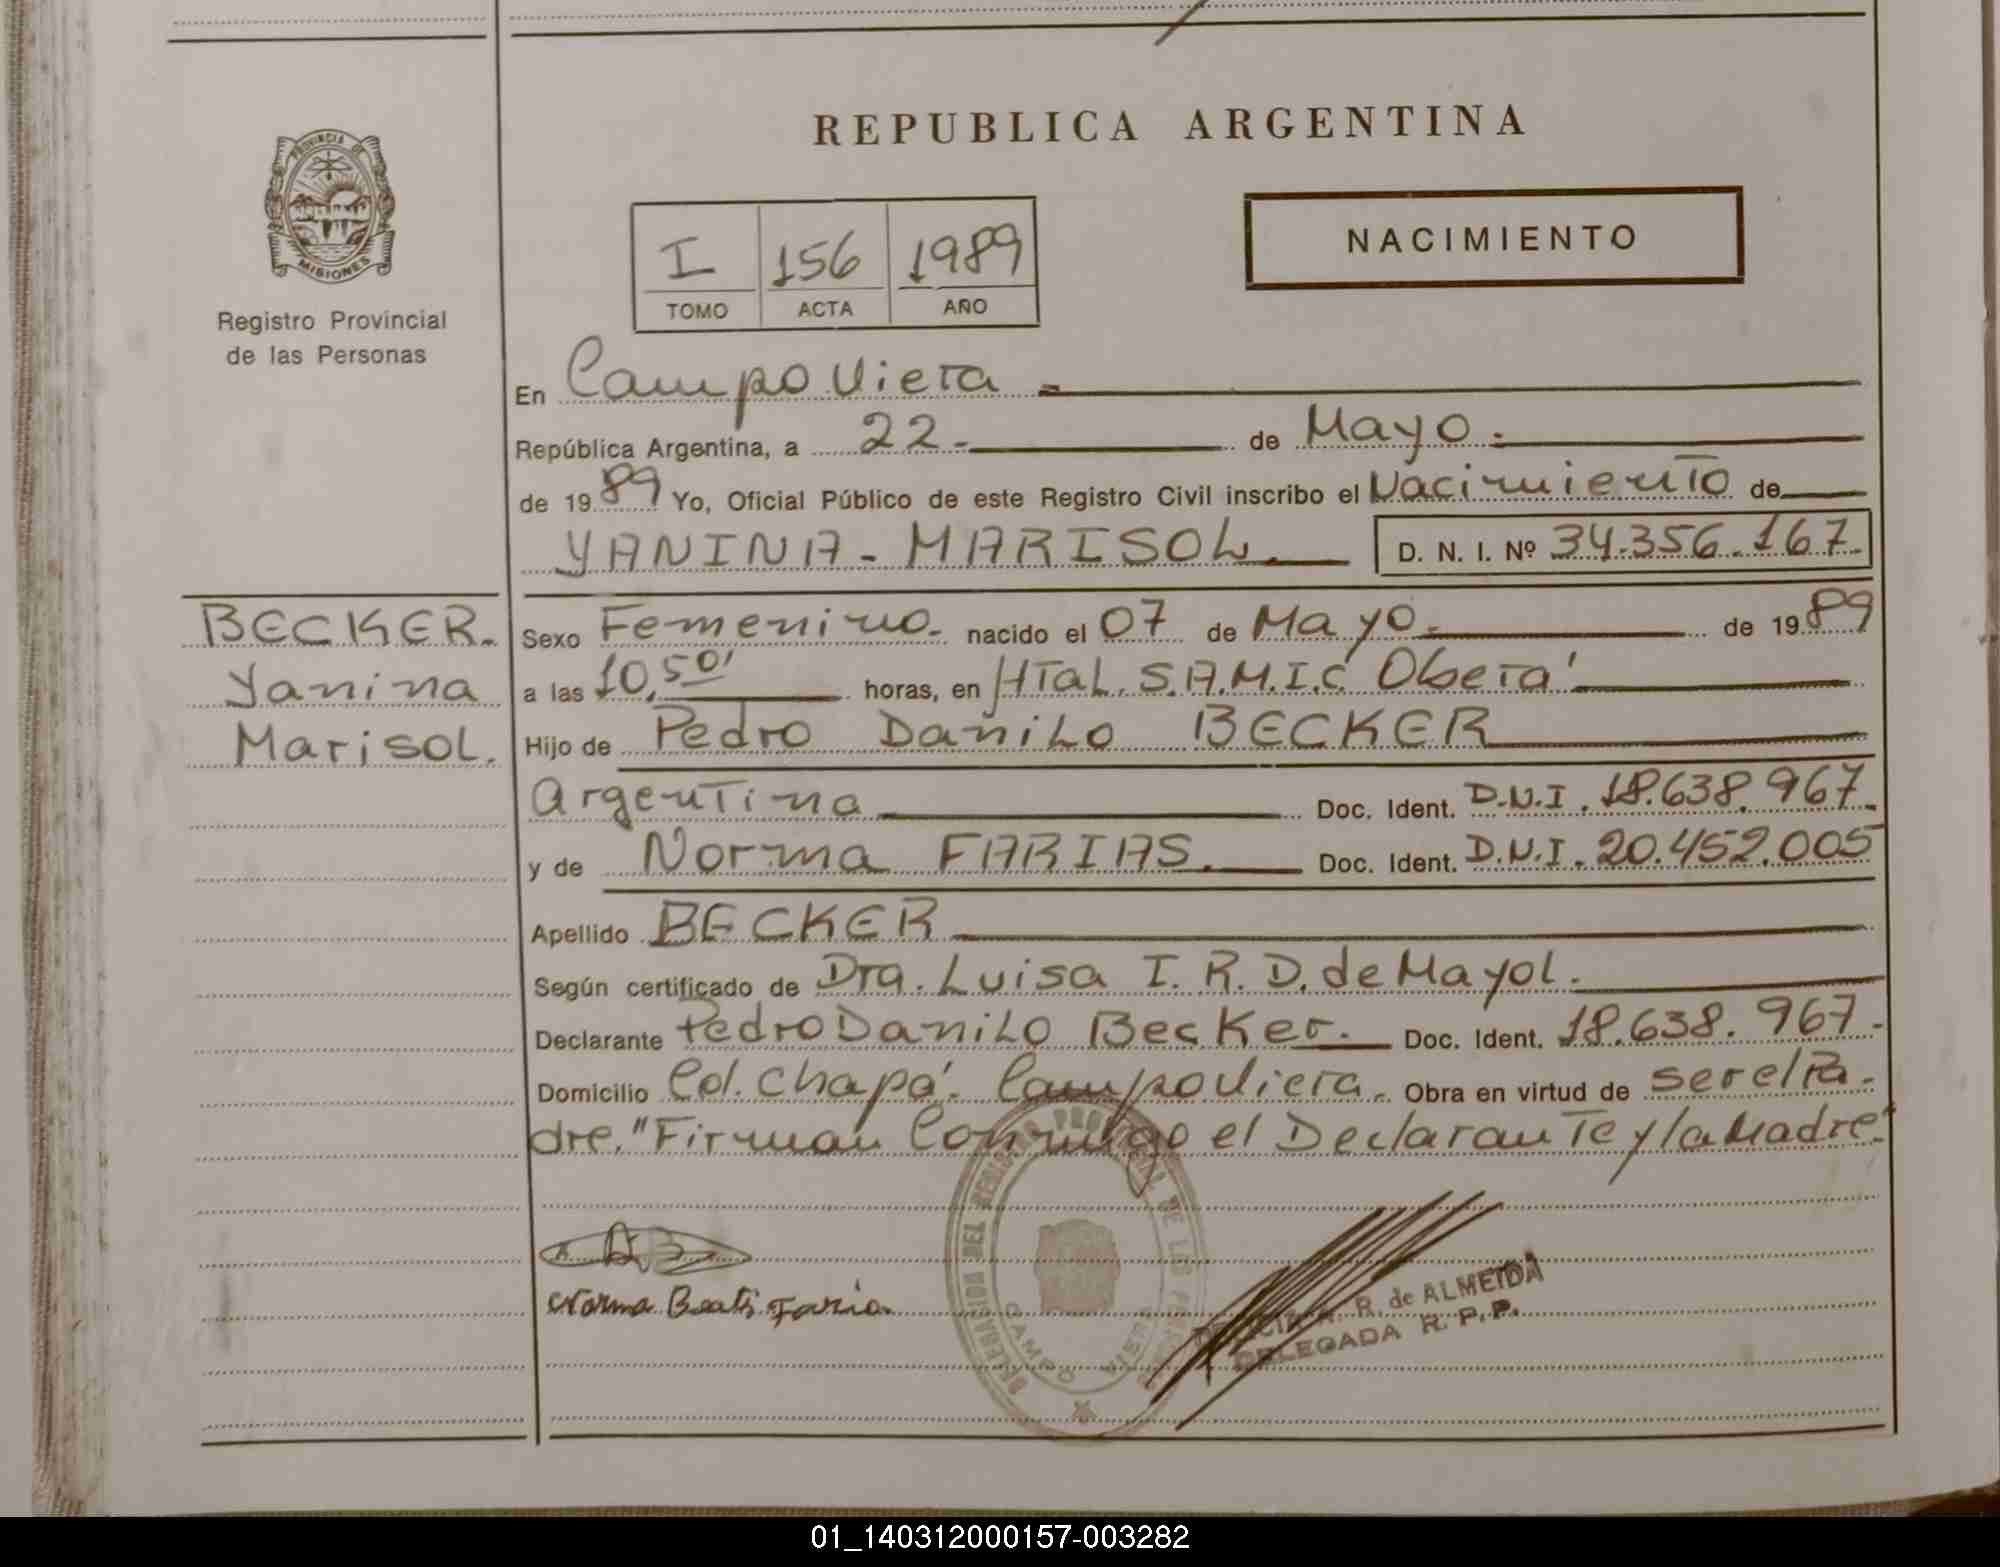 REPUBLICA ARGENTINA
PROVINCIA DE
MISIONES
Registro Provincial
de las Personas
NACIMIENTO
I 156 1989
TOMO ACTA AÑO
En Campo Viera
República Argentina, a 22- de Mayo.
de 1989 Yo, Oficial Público de este Registro Civil inscribo el Nacimiento de
YANINA-MARISOL. D. N. I. Nº 34.356.167.
BECKER.
Yanina
Marisol.
Sexo Femenino. nacido el 07 de Mayo. de 1989
a las 10,50' horas, en HTaL. S.A.M.I.C Oberá
Hijo de Pedro DaniLo BECKER
Argentina Doc. Ident. D.N.I. 18.638.967.
y de Norma FARIAS. Doc. Ident. D.N.I. 20.452.005
Apellido BECKER
Según certificado de Dra. Luisa I. R. D. de Mayol.
Declarante Pedro DaniLo Becker. Doc. Ident. 18.638.967-
Domicilio Col. Chapá. Campo Viera. Obra en virtud de ser el Pa-
dre. "Firman Conmigo el Declarante y la Madre."
Norma Beatis Faria
DELEGACION DEL REGISTRO PROVINCIAL DE LAS PERSONAS
CAMPO VIERA
R. de ALMEIDA
DELEGADA R. P. P.
01_140312000157-003282